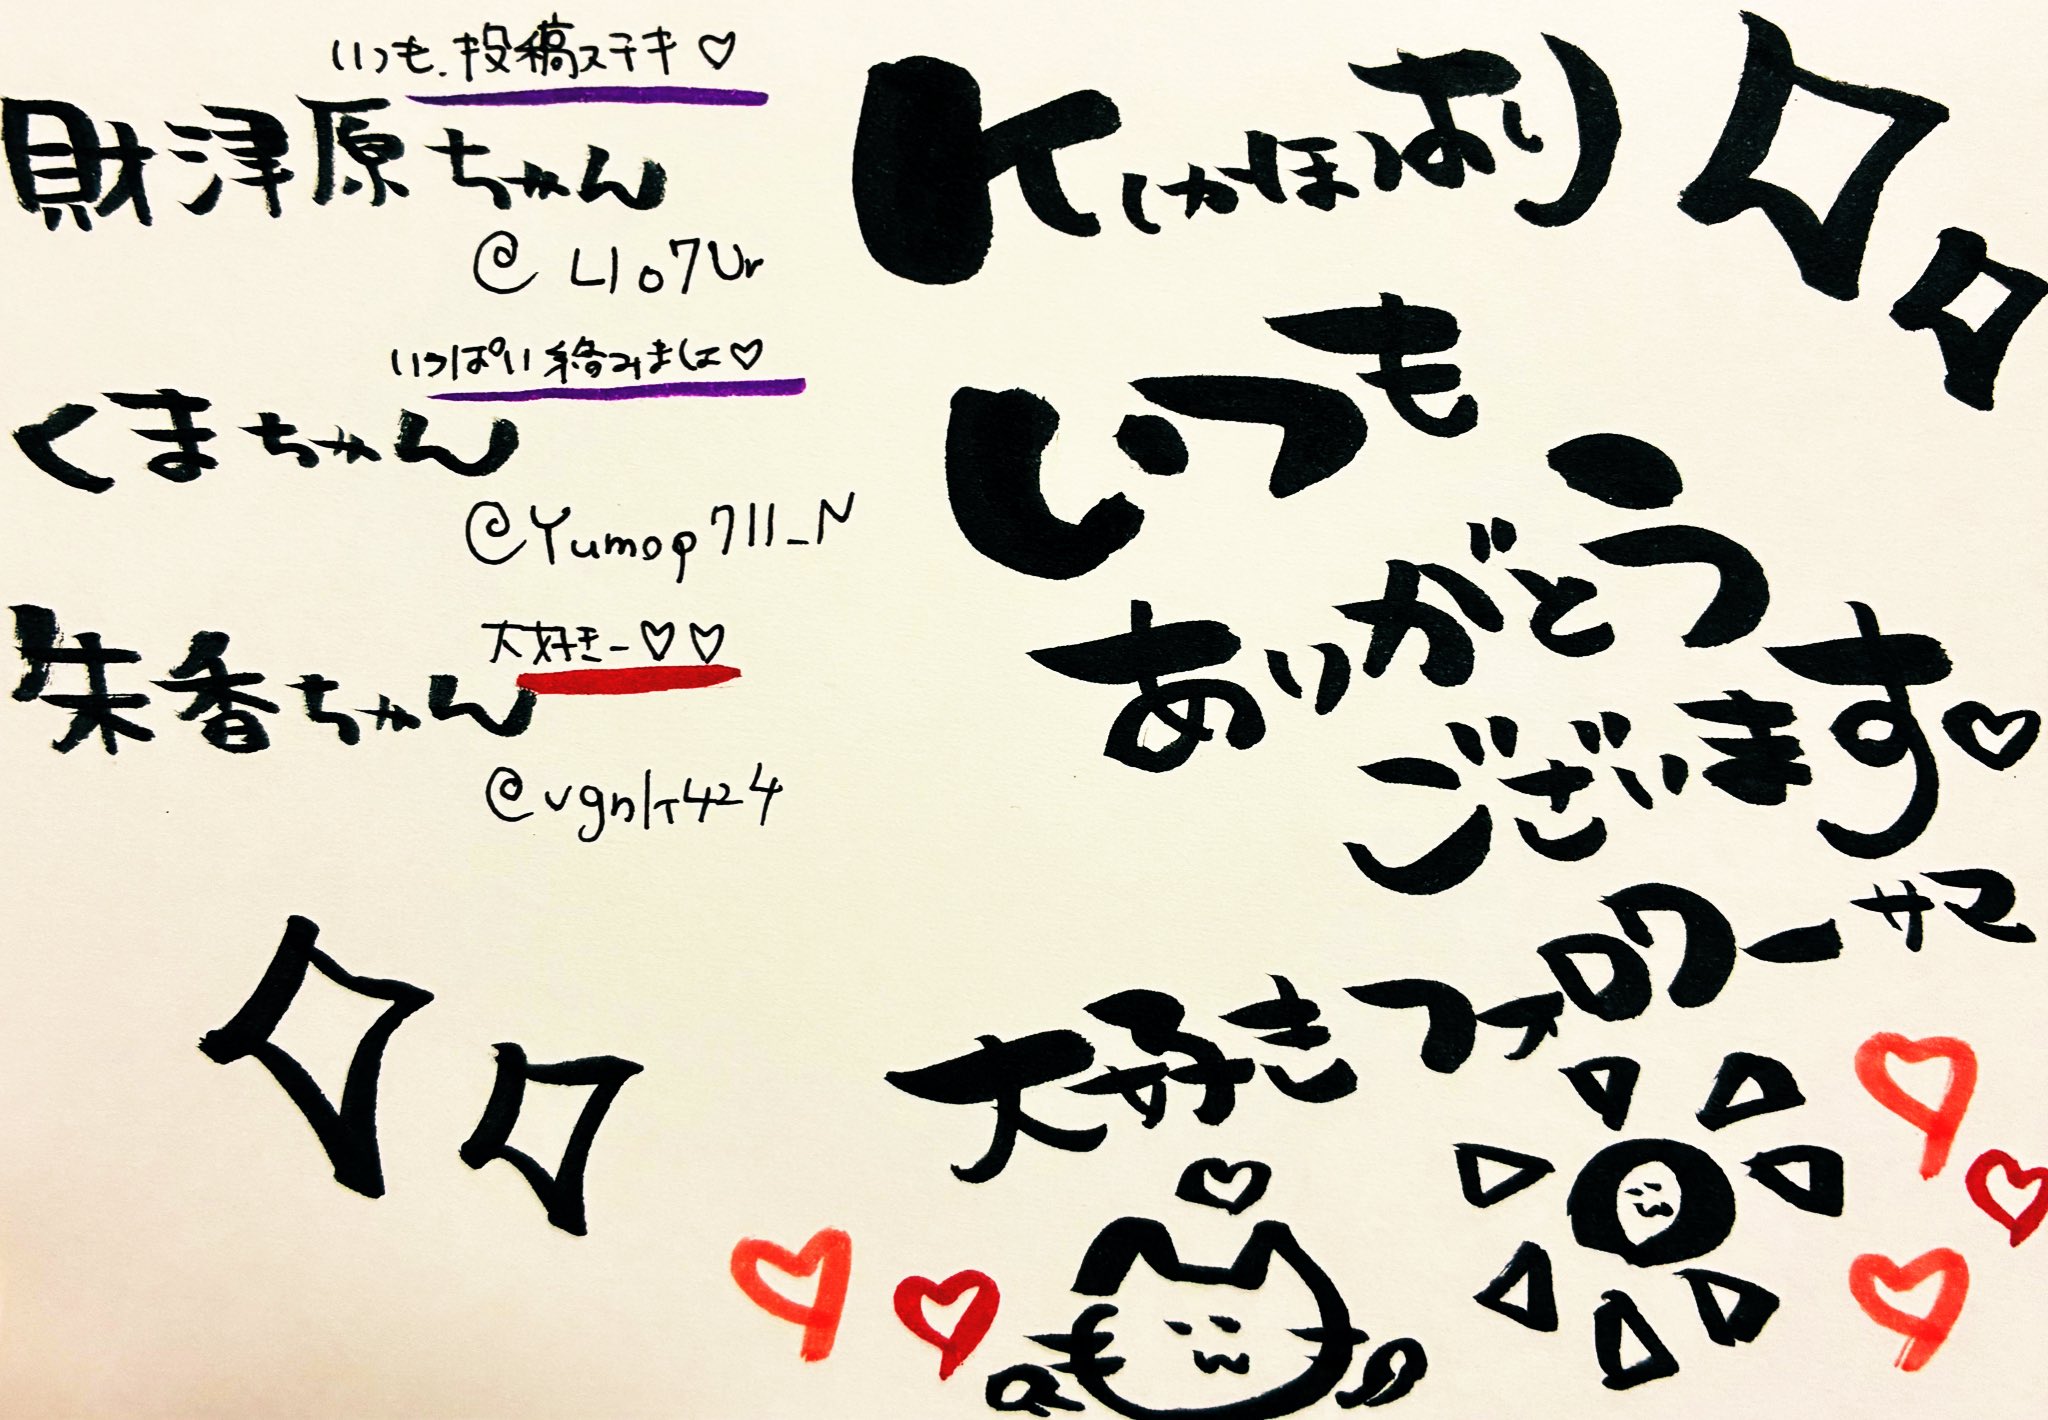 いつも、投稿ステキ♡
財津原ちゃん
@LIo7Ur
いっぱい絡みましょ♡
くまちゃん
@Yumop711_N
大好きー♡♡
朱香ちゃん
@vgnlt424
K(かほ)より
いつも
ありがとう
ございます♡
大好きフォロワーサマ